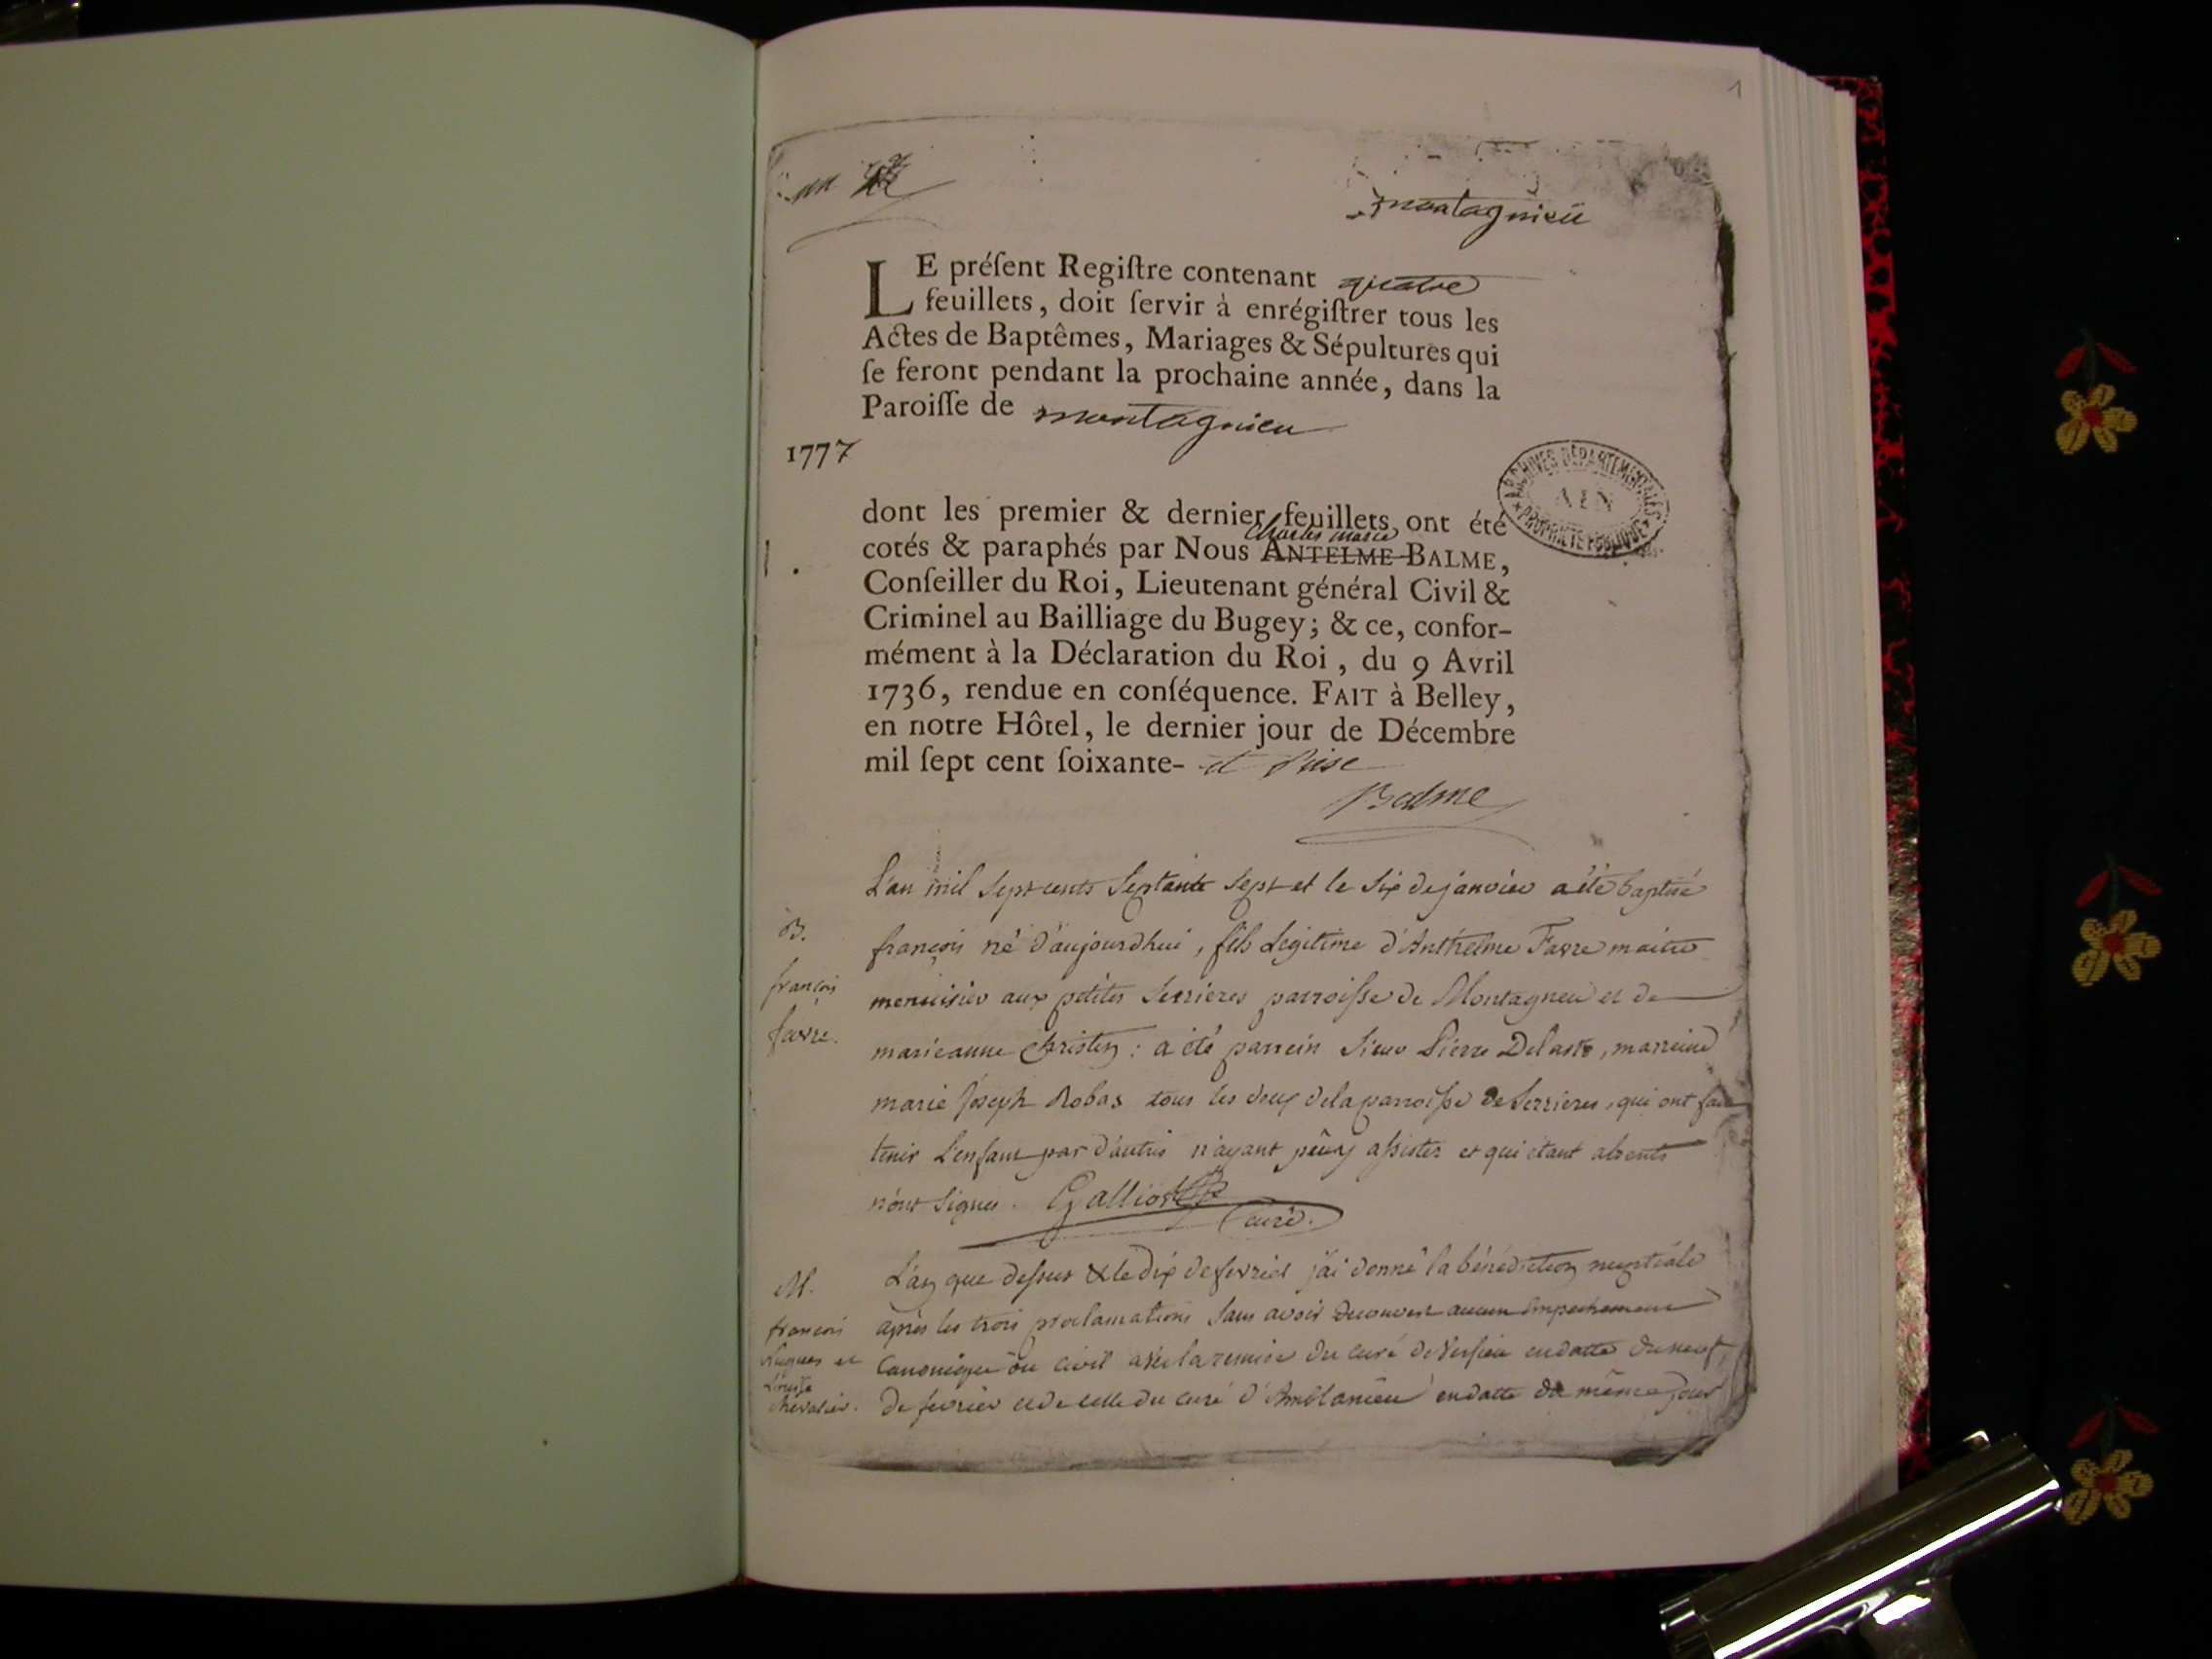 1
un
montagnieu
LE préſent Regiſtre contenant quatre
feuillets, doit ſervir à enrégiſtrer tous les
Actes de Baptêmes, Mariages & Sépultures qui
ſe feront pendant la prochaine année, dans la
Paroiſſe de montagnieu
1777
dont les premier & dernier feuillets ont été
charles marie
cotés & paraphés par Nous ANTELME BALME,
Conſeiller du Roi, Lieutenant général Civil &
Criminel au Bailliage du Bugey; & ce, confor-
mément à la Déclaration du Roi, du 9 Avril
1736, rendue en conſéquence. FAIT à Belley,
en notre Hôtel, le dernier jour de Décembre
mil ſept cent ſoixante- et seise
Balme
ARCHIVES DÉPARTEMENTALES
AIN
PROPRIÉTÉ PUBLIQUE
L'an mil sept cents septante sept et le six de janvier a été baptisé
B.
françois
favre.
françois né d'aujourdhui, fils Legitime d'Anthelme Favre maitre
menuisier aux petites Serrieres parroisse de Montagneu et de
marieanne christin : a été parrein sieur Pierre Delaste, marreine
marie Joseph Robas tous les deux de la parroisse de Serrieres, qui ont fait
tenir L'enfant par d'autres n'ayant pêu y assister et qui étant absents
n'ont signes. Galliost
curé.
M.
françois
Hugues et
chevalier.
L'an que dessus & le dix de fevrier j'ai donné la bénédiction nuptiale
après les trois proclamations sans avoir decouvert aucun empechement
Canonique ou civil avec la remise du curé de en datte du neuf
De fevrier et de celle du curé d'Amblanieu en datte du même jour